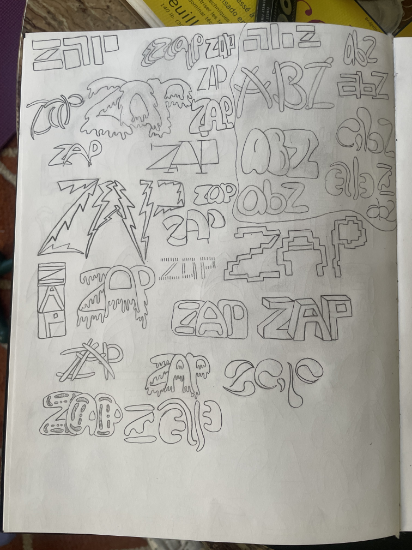 zap zap zap abz abz
zap ABZ abz
zap zap ZAP abz
ZAP ZAP ABZ abz
ZAP zap abz
ZAP
ZAP zap zap ZAP
ZAP ZAP
ZAP ZAP zap
zap zap